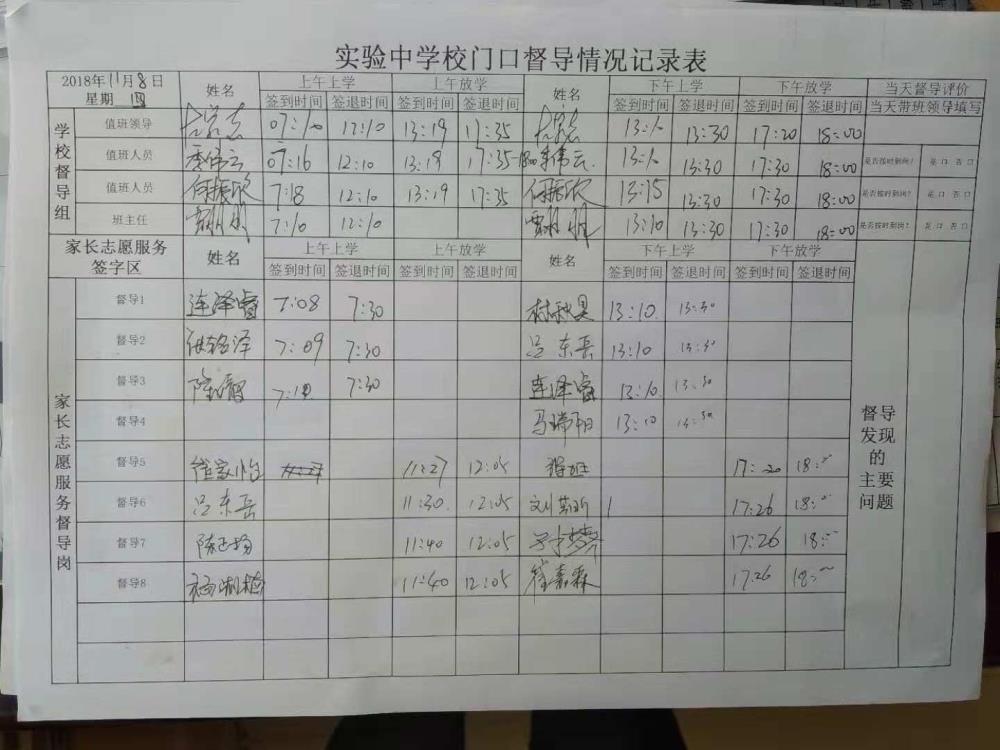 实验中学校门口督导情况记录表
2018年11月8日 姓名 上午上学 上午放学 姓名 下午上学 下午放学 当天督导评价
星期 四 签到时间 签退时间 签到时间 签退时间 签到时间 签退时间 签到时间 签退时间 当天带班领导填写
学校督导组
值班领导 07:10 12:10 13:19 17:35 13:10 13:30 17:20 18:00
值班人员 07:16 12:10 13:19 17:35 13:10 13:30 17:30 18:00 是否按时到岗? 是 口 否 口
值班人员 何振欣 7:18 12:10 13:19 17:35 何振欣 13:15 13:30 17:30 18:00 是否按时到岗? 是 口 否 口
班主任 7:10 12:10 13:10 13:30 17:30 18:00 是否按时到岗? 是 口 否 口
家长志愿服务 姓名 上午上学 上午放学 姓名 下午上学 下午放学
签字区 签到时间 签退时间 签到时间 签退时间 签到时间 签退时间 签到时间 签退时间
家长志愿服务督导岗
督导1 连泽睿 7:08 7:30 13:10 13:30
督导2 7:09 7:30 吕东岳 13:10 13:30
督导3 7:10 7:30 连泽睿 13:10 13:30
督导4 马瑞阳 13:10 13:30
督导5 崔家怡 11:27 12:05 17:20
督导6 吕东岳 11:30 12:05 17:26
督导7 陈正扬 11:40 12:05 17:26
督导8 11:40 12:05 崔嘉霖 17:26
督导
发现
的
主要
问题